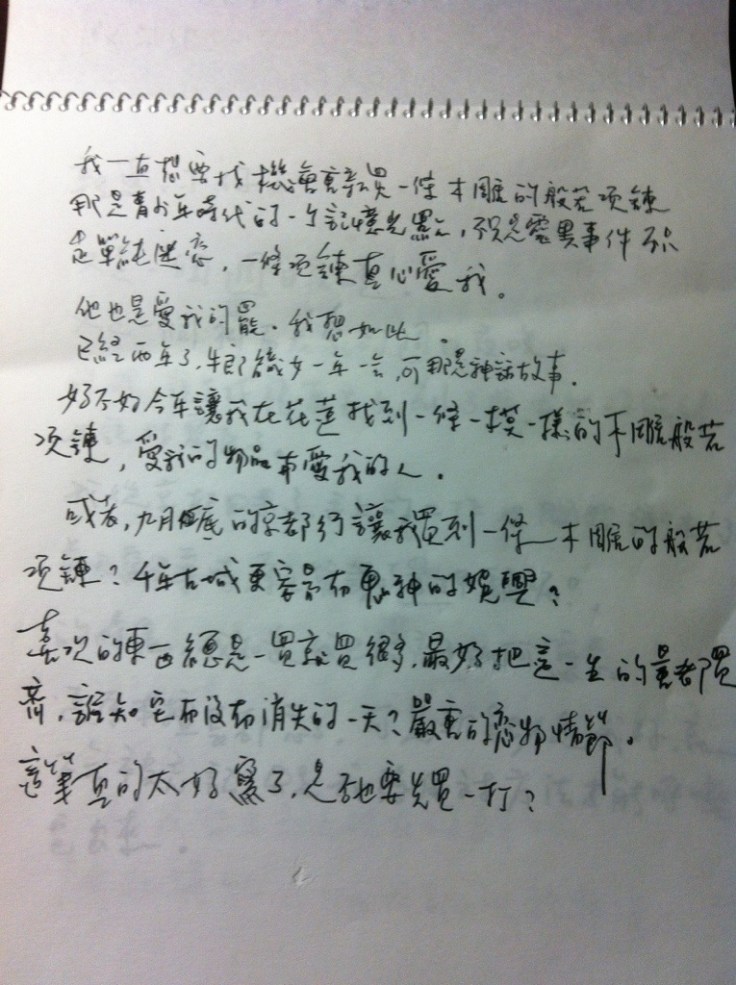 我一直想要找機會重新買一條木雕的般若項鍊
那是青少年時代的一個記憶光點,不只是靈異事件不只
是單純迷戀,一條項鍊真心愛我。
他也是愛我的罷。我想如此。
已經兩年了,牛郎織女一年一會,可那是神話故事。
好不好今年讓我在花蓮找到一條一模一樣的木雕般若
項鍊,愛我的物品有愛我的人。
或者,九月底的京都行讓我買到一條木雕的般若
項鍊?千年古城更容易有鬼神的
喜歡的東西總是一買就買很多,最好把這一生的量都買
齊,誰知它有沒有消失的一天?嚴重的戀物情節。
這筆真的太好寫了,是否也要先買一打?